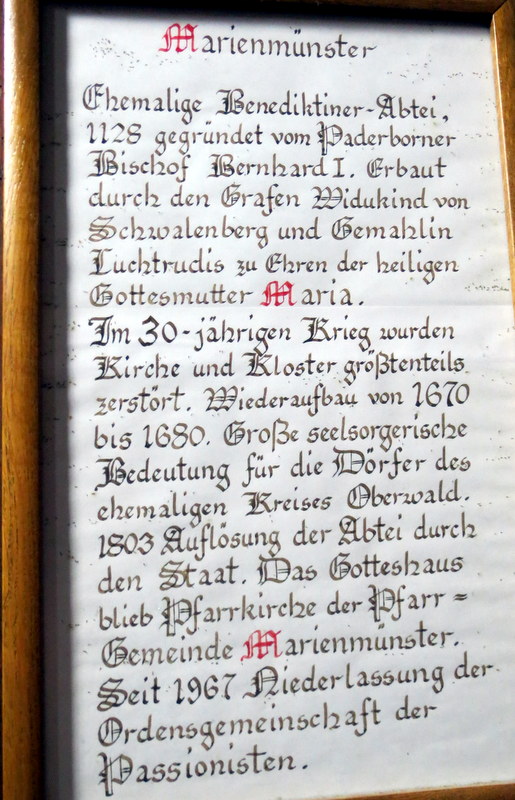 Marienmünster
Ehemalige Benediktiner-Abtei,
1128 gegründet vom Paderborner
Bischof Bernhard I. Erbaut
durch den Grafen Widukind von
Schwalenberg und Gemahlin
Luchtrudis zu Ehren der heiligen
Gottesmutter Maria.
Im 30-jährigen Krieg wurden
Kirche und Kloster größtenteils
zerstört. Wiederaufbau von 1670
bis 1680. Große seelsorgerische
Bedeutung für die Dörfer des
ehemaligen Kreises Oberwald.
1803 Auflösung der Abtei durch
den Staat. Das Gotteshaus
blieb Pfarrkirche der Pfarr=
Gemeinde Marienmünster.
Seit 1967 Niederlassung der
Ordensgemeinschaft der
Passionisten.